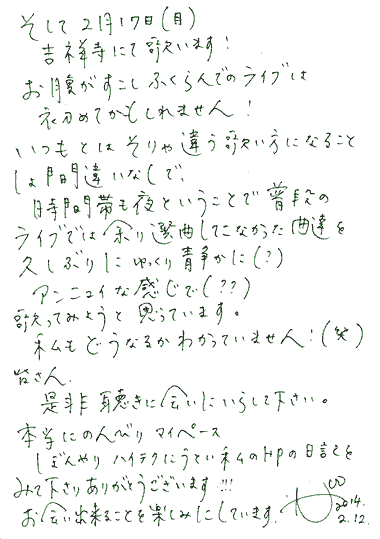 そして2月17日(月)
吉祥寺にて歌います!
お腹がすこしふくらんでのライブは
初めてかもしれません!
いつもとはそりゃ違う歌い方になること
は間違いなしで、
時間帯も夜ということで普段の
ライブでは余り選曲してこなかった曲達を
久しぶりにゆっくり静かに(?)
アンニュイな感じで(??)
歌ってみようと思っています。
私もどうなるかわかっていません!(笑)
皆さん、
是非聴きに会いにいらして下さい。
本当にのんびりマイペース
ぼんやりハイテクにうとい私のHPの日記を
みて下さりありがとうございます!!!
お会い出来ることを楽しみにしています。
2014.
2.12.